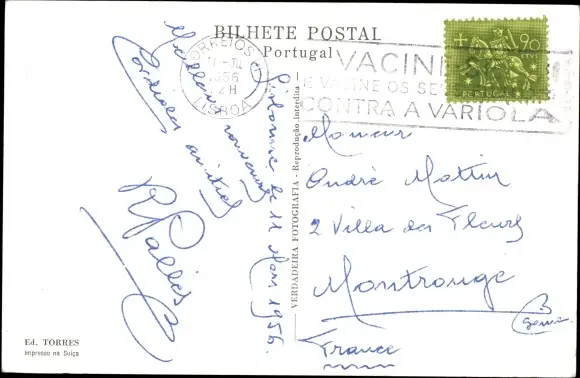 BILHETE POSTAL
Portugal
CORREIOS
1956
12H
LISBOA
VACINE-SE
E VACINE OS SEUS
CONTRA A VARIOLA
90
CTVS
PORTUGAL
Meilleurs souvenirs
Cordiales amitiés
R Pallies
Lisbonne le 11 Mars 1956.
VERDADEIRA FOTOGRAFIA - Reprodução interdita
Monsieur
André Mattin
2 Villa des Fleurs
Montrouge
Seine
France
Ed. TORRES
Impresso na Suíça